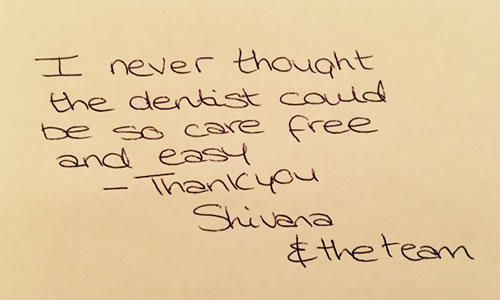 I never thought
the dentist could
be so care free
and easy
- Thankyou
Shivana
& the team